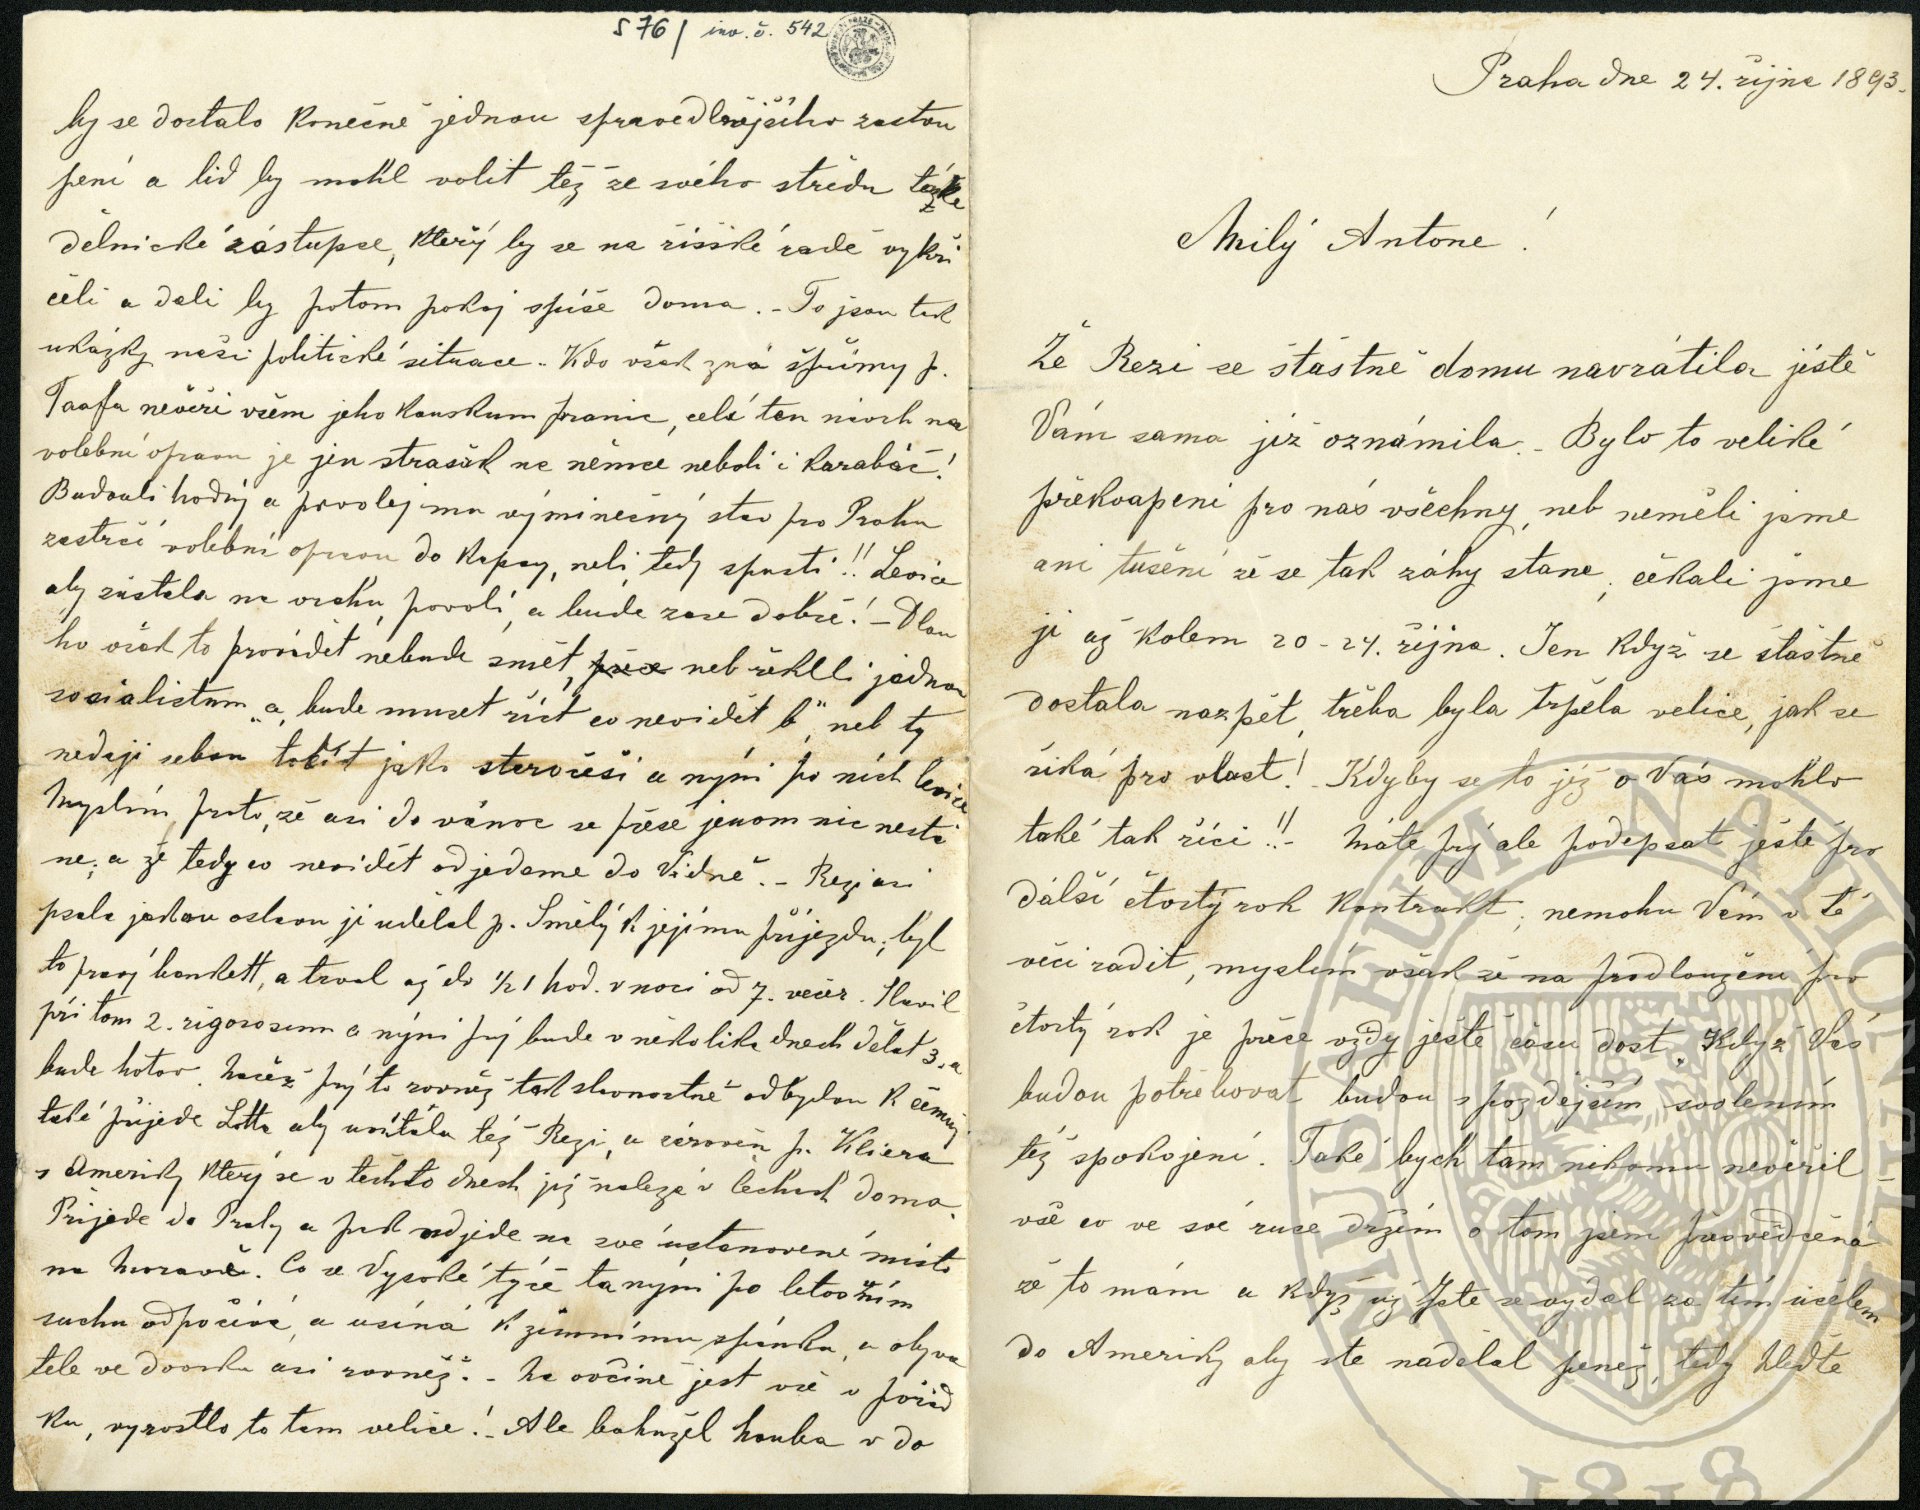 S 76/ inv. č. 542
by se dostalo konečně jednou spravedlnějšího zastou
pení a lid by mohl volit též ze svého středu také
dělnické zástupce, kteřý by se na řísské radě vykři
čeli a dali by potom pokoj spíše doma. - To jsou tak
ukázky naší politické situace. Kdo však zná špúmy p.
Taafa nevěří všem jeho kouskum pranic, celá ten návrh na
volební opravu je jen strašák na němce neboli i karabáč!
Budouli hodný a provolej mu výminečný stav pro Prahu
zastrčí volební opravu do kapsy, neli, tedy spustí!! Levice
aby zůstala na vrchu, povolí, a bude zase dobře! - Dlou
ho však to provádět nebude smět, neb řeklli jednou
socialistum „a„ bude muset říct co nevidět b„ neb ty
nedají sebou točit jako staročeši a nýní po nich levice
Myslím proto, zě asi do vánoc se přese jenom nic nesta
ne; a žě tedy co nevidět odjedeme do Vídně. - Rezi asi
psala jakou oslavu jí udělal p. Smělý k jejímu příjezdu; byl
to pravý bankett, a trval až do 1/2 1 hod. v noci od 7. večer. Slavil
při tom 2. rigorosum a nýní prý bude v několika dnech dělat 3. a
bude hotov. Načěž prý to rovněž tak slavnostně odbydou k čemuž
také přijede Lotta aby uvítala též Rezi, a zároveň p. Kliera
s Ameriky který se v těchto dnech již nalezá v Čechách doma.
Přijede do Prahy a pak odjede na své ustanovené místo
na Moravě. Co se Vysoké týče ta nýní po letošním
suchu odpočívá, a usíná k zimnímu spánku, a obyva
tele ve dvorku asi rovněž. - Na ovčíně jest vše v pořád
ku, vyrostlo to tam velice! - Ale bohužel houba v do
Praha dne 24. října 1893.
Milý Antone!
Žě Rezi se štastně domu navrátila jěstě
Vám sama již oznámila. - Bylo to veliké
překvapení pro nás všechny, neb neměli jsme
ani tušení žě se tak záhy stane, čěkali jsme
ji až kolem 20 - 24. října. Jen když se štastně
dostala nazpět, třěba byla trpěla velice, jak se
řiká pro vlast! - Kdyby se to již o Vás mohlo
také tak říci!! - Máte prý ale podepsat jěstě pro
dálší čtvrtý rok kontrakt, nemohu Vám v té
věci rádit, myslím však žě na prodloužení pro
čtvrtý rok je přece vždy jěstě času dost. Když Vás
budou potřěbovat budou s pozdějším svolením
též spokojení. Také bych tam nikomu nevěřil
vše co ve své ruce držím o tom jsem přesvědčená
žě to mám a když už Jste se vydal za tím účělem
do Ameriky aby ste nadělal peněz, tedy hleďte
MUSAEUM NATIONALE
1818